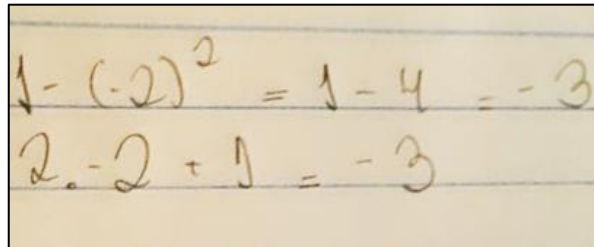 1 - (-2)² = 1 - 4 = -3
2 . -2 + 1 = -3